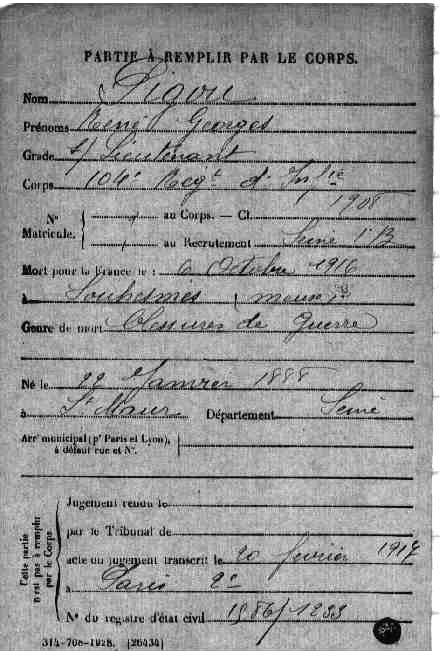 PARTIE À REMPLIR PAR LE CORPS.
Nom Pigou
Prénoms René Georges
Grade S/ Lieutenant
Corps 104e Regt d'Infie
N° Matricule. au Corps. — Cl. 1908
au Recrutement Seine 1er B
Mort pour la France le : 6 Octobre 1916
à Souhesmes (Meuse)
Genre de mort blessures de Guerre
Né le 22 Janvier 1888
à St Maur Département Seine
Arrt municipal (pr Paris et Lyon),
à défaut rue et N°.
Cette partie n'est pas à remplir par le Corps
Jugement rendu le
par le Tribunal de
acte ou jugement transcrit le 20 février 1917
à Paris 2e
N° du registre d'état civil 1986/1233
314-708-1928. [26434]